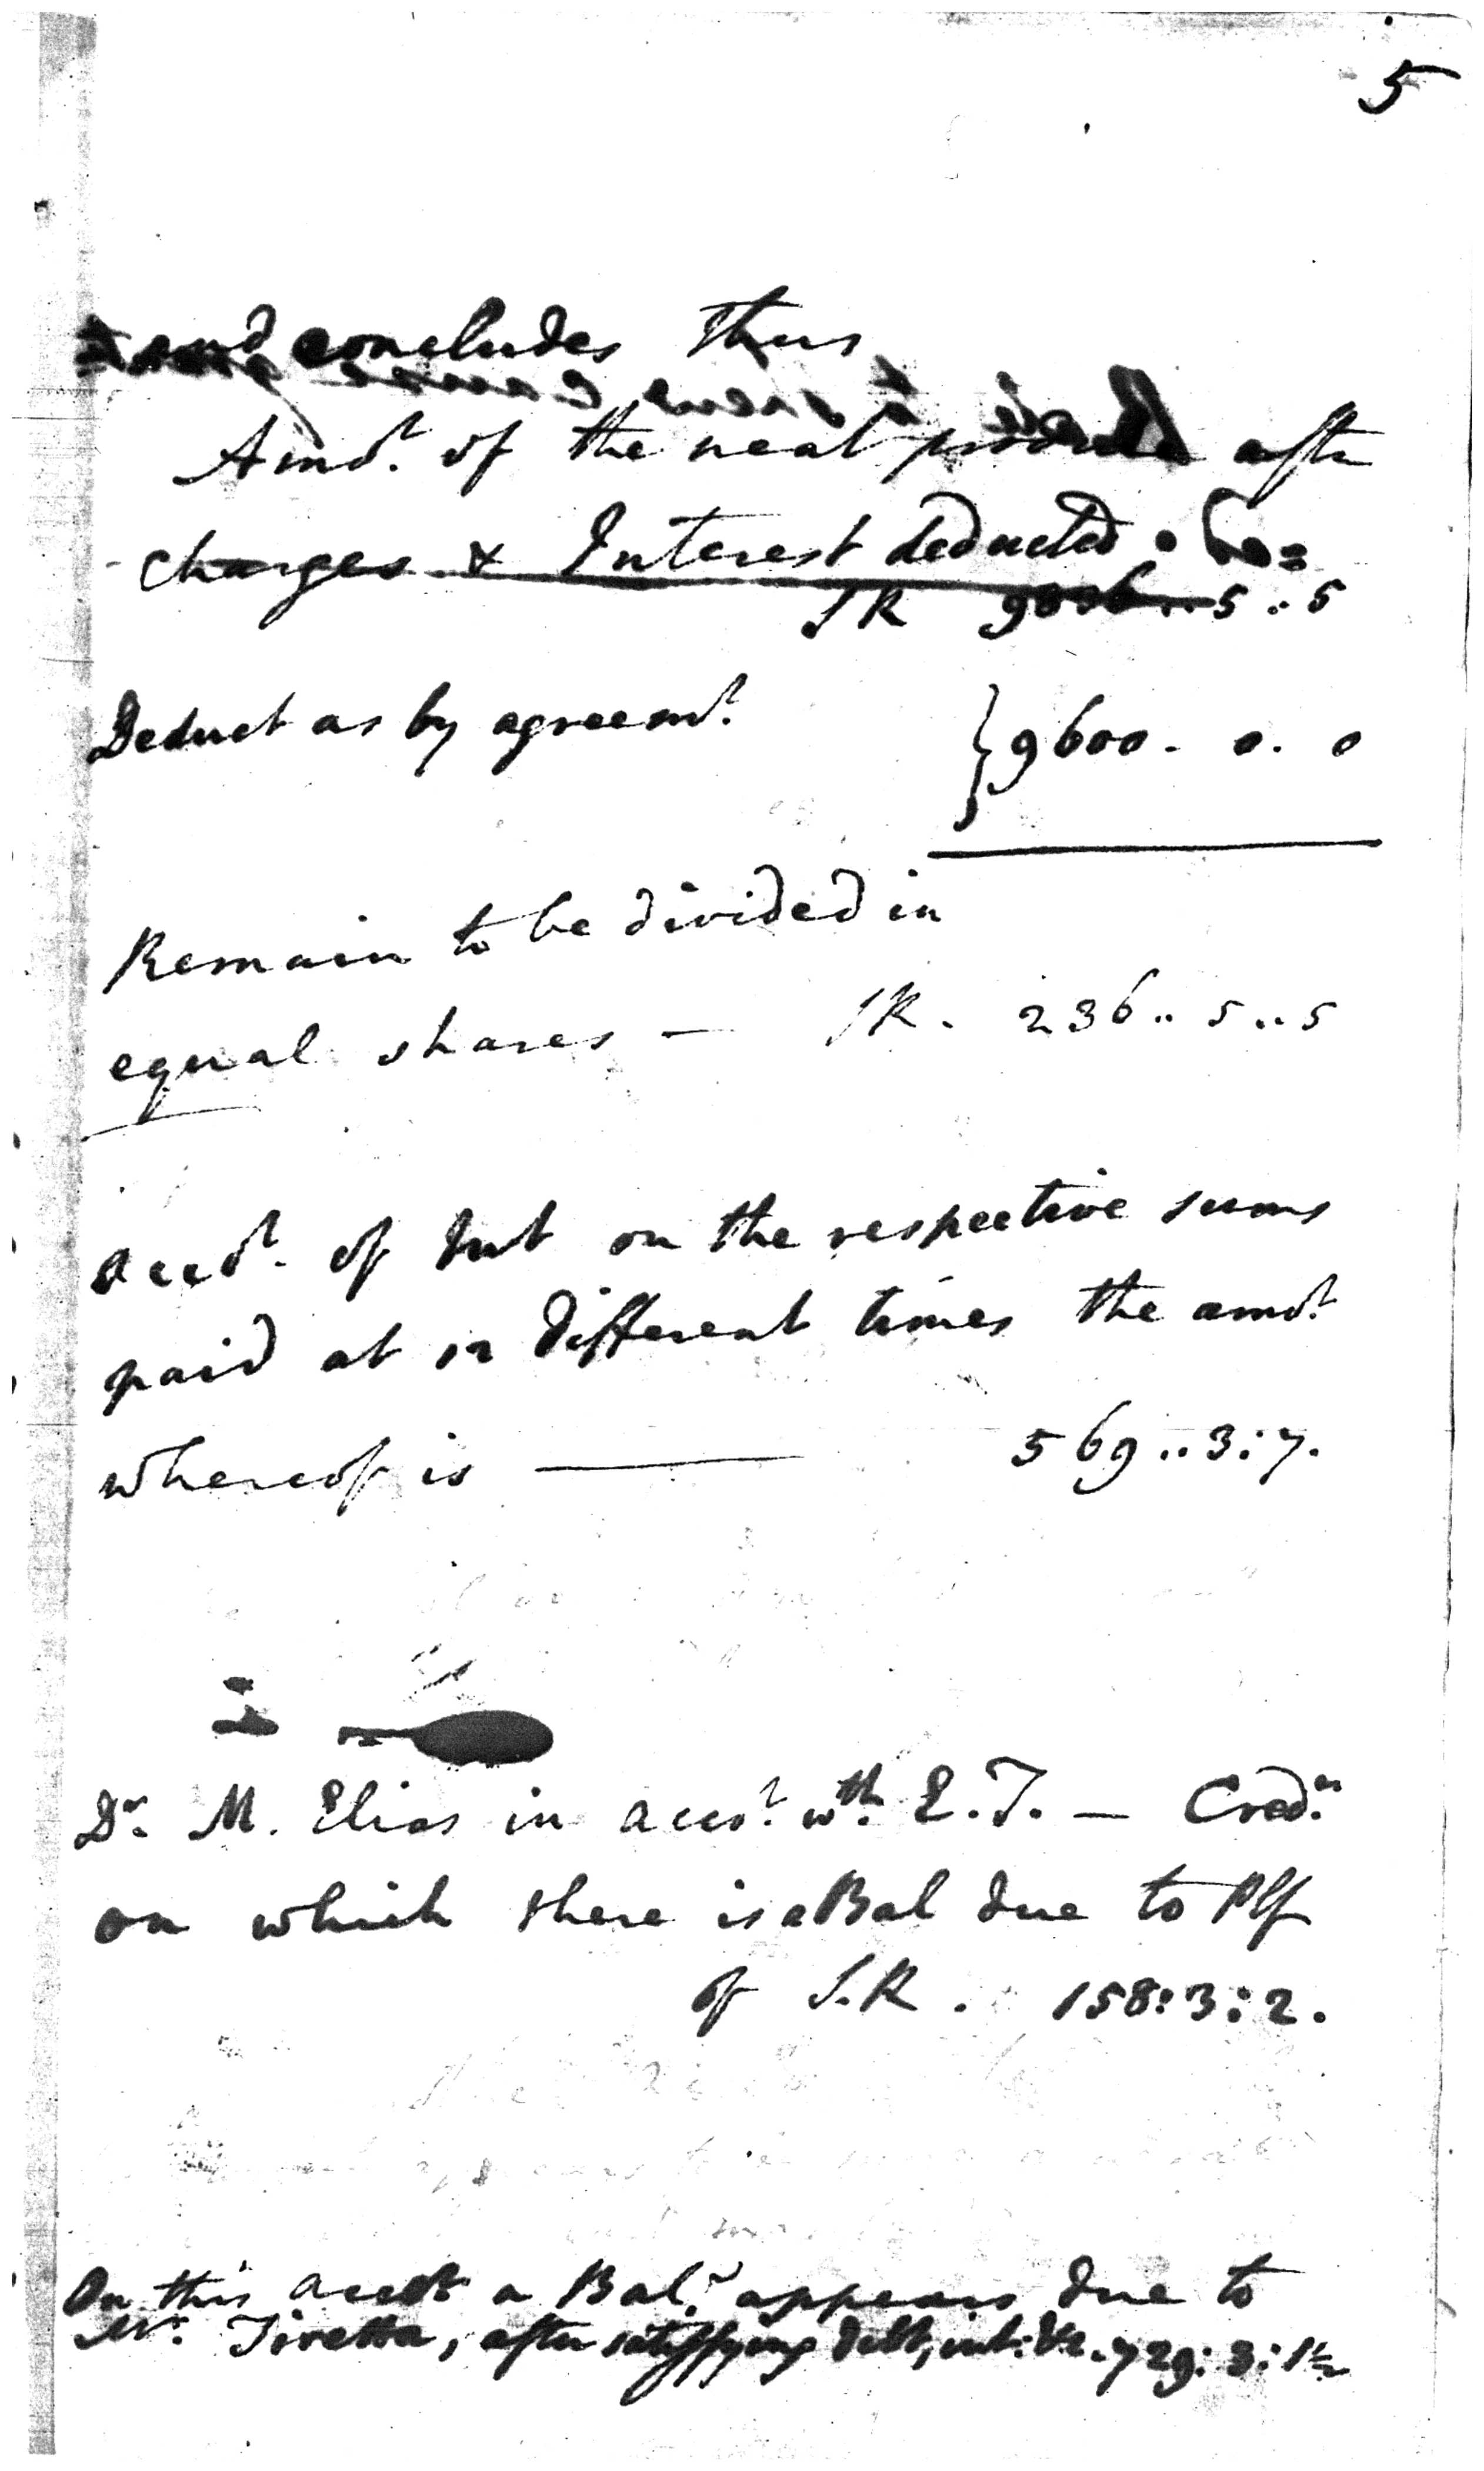 5
and concludes thus
Amot. of the neat produce after
charges & Interest deducted
SR 9836..5..5
Deduct as by agreemt.
}9600. 0. 0
Remain to be divided in
equal shares — SR. 236..5..5
Accot. of Int on the respective sums
paid at 12 different times the amot.
whereof is — 569..3:7.
Dr. M. Elias in accot. wth. E.T. — Credr.
on which there is a Bal due to Plf
of S.R. 158:3:2.
On this accot a Bal. appears due to
Mr. Tiretta, after satisfying debt, int: &c. 729:3:1½